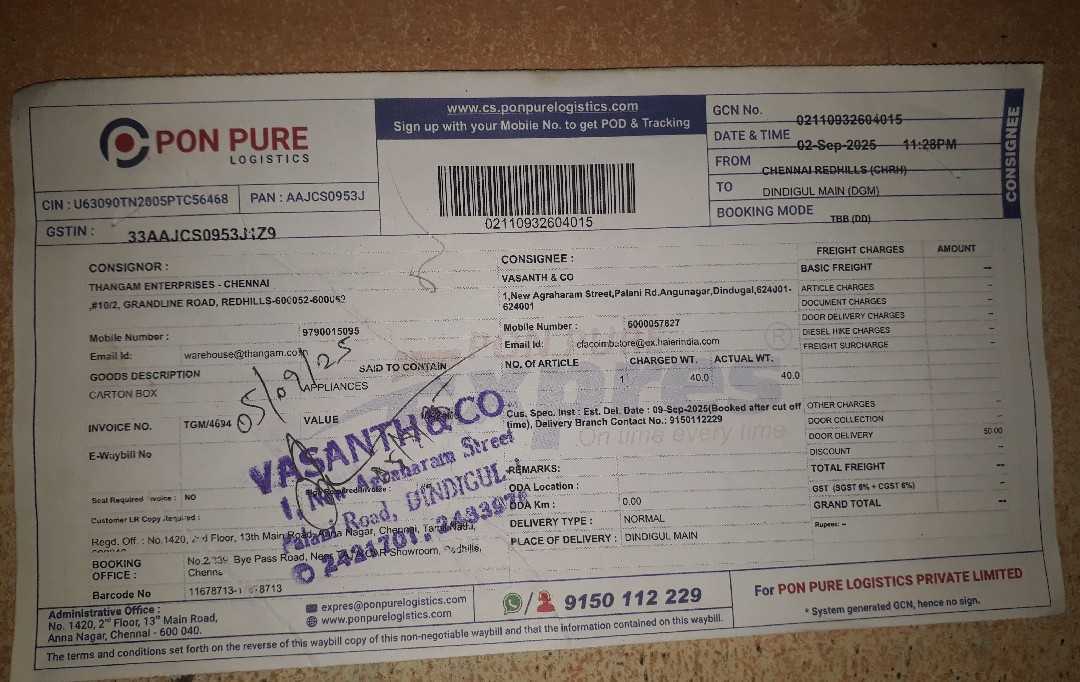 PON PURE
LOGISTICS
www.cs.ponpurelogistics.com
Sign up with your Mobile No. to get POD & Tracking
GCN No. 02110932604015
DATE & TIME 02-Sep-2025 11:28PM
FROM CHENNAI REDHILLS (CHRH)
TO DINDIGUL MAIN (DGM)
BOOKING MODE TBB (DD)
CONSIGNEE
CIN : U63090TN2005PTC56468 PAN : AAJCS0953J
GSTIN : 33AAJCS0953J1Z9
02110932604015
CONSIGNOR :
THANGAM ENTERPRISES - CHENNAI
,#10/2, GRANDLINE ROAD, REDHILLS-600052-600052
Mobile Number : 9790015095
Email Id: warehouse@thangam.com
GOODS DESCRIPTION SAID TO CONTAIN
CARTON BOX APPLIANCES
INVOICE NO. TGM/4694 VALUE
E-Waybill No
05/09/25
CONSIGNEE :
VASANTH & CO
1,New Agraharam Street,Palani Rd,Angunagar,Dindugal,624001-
624001
Mobile Number : 6000057827
Email Id: cfacoimbatore@ex.haierindia.com
NO. OF ARTICLE CHARGED WT. ACTUAL WT.
1 40.0 40.0
Cus. Spec. Inst : Est. Del. Date : 09-Sep-2025(Booked after cut off
time), Delivery Branch Contact No.: 9150112229
REMARKS:
ODA Location :
ODA Km : 0.00
DELIVERY TYPE : NORMAL
PLACE OF DELIVERY : DINDIGUL MAIN
FREIGHT CHARGES AMOUNT
BASIC FREIGHT --
ARTICLE CHARGES --
DOCUMENT CHARGES --
DOOR DELIVERY CHARGES --
DIESEL HIKE CHARGES --
FREIGHT SURCHARGE --
OTHER CHARGES --
DOOR COLLECTION --
DOOR DELIVERY 50.00
DISCOUNT --
TOTAL FREIGHT --
GST (SGST 6% + CGST 6%) --
GRAND TOTAL --
Rupees: --
PON PURE
Xpres
®
On time every time
VASANTH & CO
1, New Agraharam Street
Palani Road, DINDIGUL
2421701, 
Seal Required Invoice : NO
Customer LR Copy Required :
Regd. Off. : No.1420, 2nd Floor, 13th Main Road, Anna Nagar, Chennai, Tamil Nadu,
BOOKING OFFICE : Bye Pass Road, Showroom, Redhills,
Barcode No
Administrative Office :
No. 1420, 2nd Floor, 13th Main Road,
Anna Nagar, Chennai - 600 040.
expres@ponpurelogistics.com
www.ponpurelogistics.com
9150 112 229
For PON PURE LOGISTICS PRIVATE LIMITED
* System generated GCN, hence no sign.
The terms and conditions set forth on the reverse of this waybill copy of this non-negotiable waybill and that the information contained on this waybill.